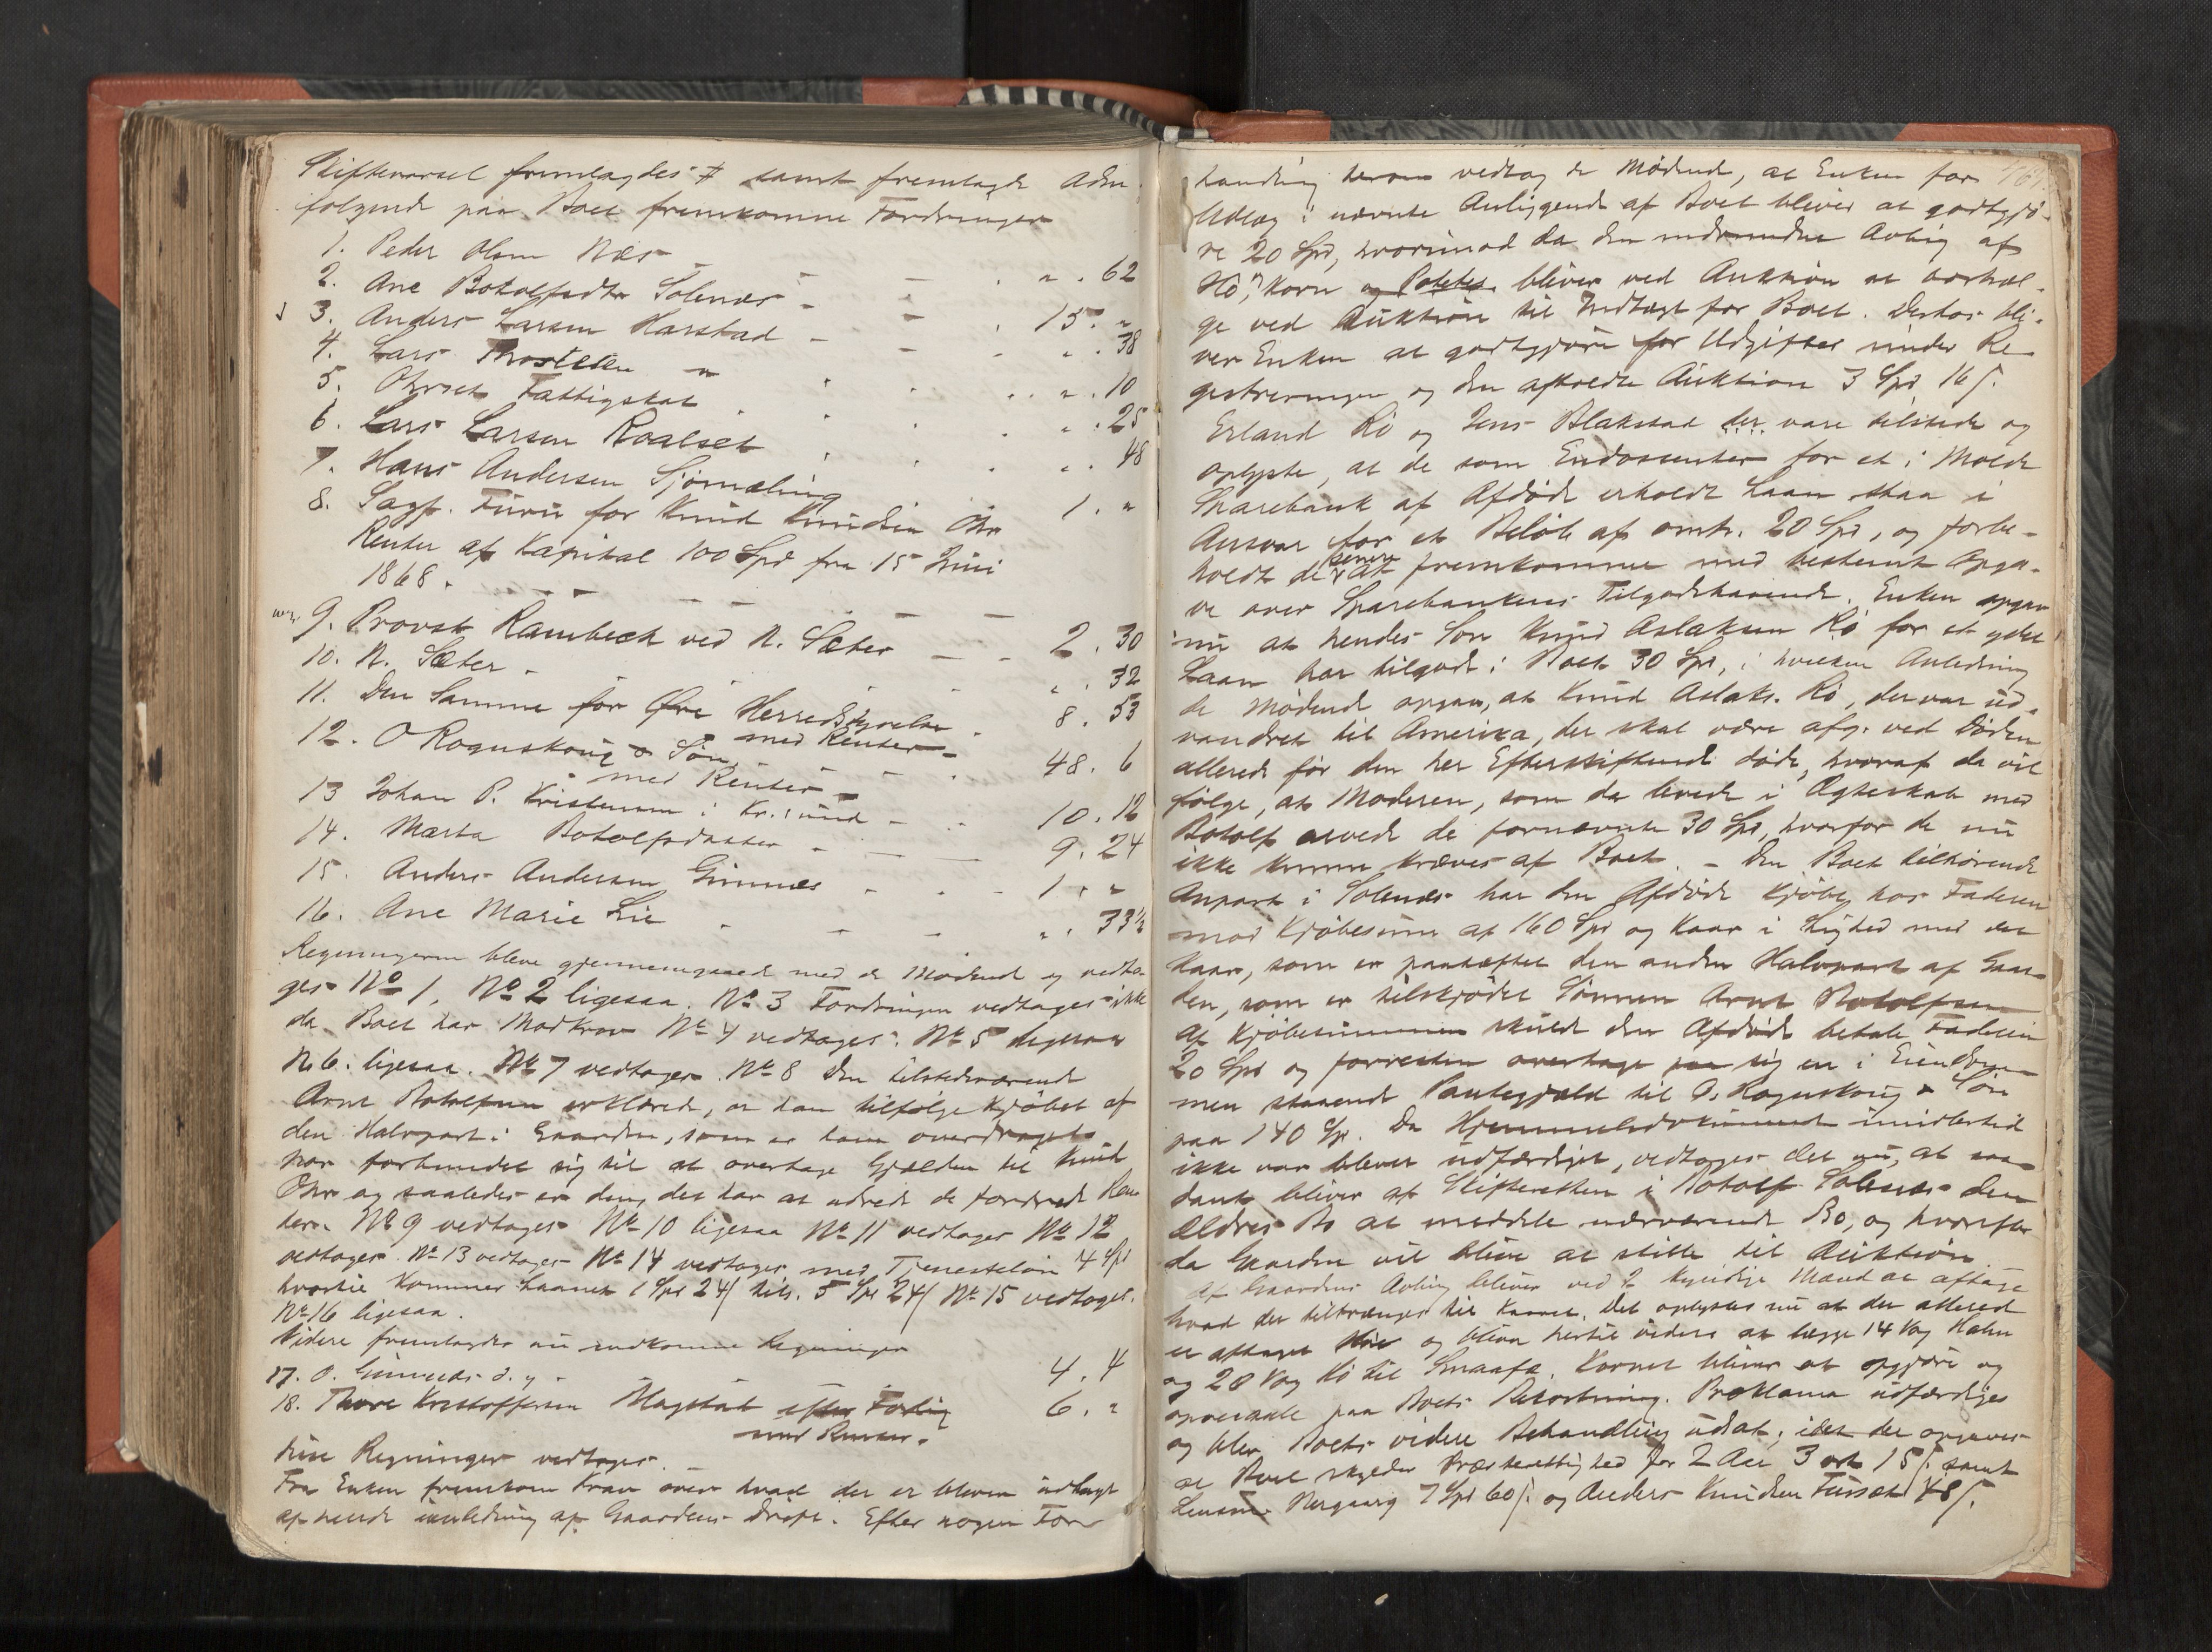 Skiftevarsel fremlagdes # samt fremlagde Adm.
følgende paa Boet fremkomne Fordringer
1. Peder Olsen Næs - - . " . 62
2. Ane Botolfsdtr Solenæs - - . 15. "
3. Anders Larsen Harstad - - - " . 38
4. Lars Thostesen " . . . " . 10
5. Øhrset Fattigskat . . . " . 25
6. Lars Larsen Roalset . . . " . 48
7. Hans Andersen Sjømæling 1. "
8. Sagf. Furu for Knud Knudsen Øhr
Renter af Kapital 100 Spd fra 15 Juni
1868. - - - - 2. 30
9. Provst Rambech ved N. Sæter - - " . 32
10. N. Sæter - - - 8. 53
11. Den Samme for Øre Herredstyrelse
med Renter - 48. 6
12. O Roguskoug & Søn
med Renter - 10. 12
13 Johan P. Kristensen i Kr.sund - - 9. 24
14. Marta Botolfsdatter - - - 1. "
15. Anders Andersen Gimnæs - - -
16. Ane Marie Lie - - - " . 33½
Regningerne bleve gjennemgaaed med de Mødende og vedta-
ges No 1, No 2 ligesaa. No 3 Fordringen vedtages ikke
da Boet har Modkrav No 4 vedtages. No 5 ligesaa
N. 6. ligesaa. No 7 vedtages. No 8 Den tilstedeværende
Arnt Botolfsen erklærede, at han tilfølge Kjøbet af
den Halvpart i Gaarden, som er ham overdraget
har forbundet sig til at overtage Gjælden til Knud
Øhr og saaledes er den, der har at udrede de fordrede Ren-
ter. No 9 vedtages No 10 ligesaa No 11 vedtages No 12
vedtages. No 13 vedtages No 14 vedtages med Tjenesteløn 4 Spd
hvortil kommer Laanet 1 Spd 24/ tils. 5 Spd 24/ No 15 vedtages.
No 16 ligesaa.
Videre fremlagdes nu indkomne Regninger
17. O. Gimnæs d. y. - 4. 4
18. Thore Kristoffersen Magstad 6. "
med Renter.
disse Regninger vedtages.
Fra Enken fremkom Krav over hvad der er bleven udlagt
af hende i anledning af Gaardens Drift. Efter nogen For-
handling herom vedtog de Mødende, at Enken for
Udlæg i nævnte Anliggende af Boet bliver at godtgjø-
re 20 Spd, hvorimod da den indvundne Avling af
Hø, Korn og Potetes bliver ved Auktion at bortsæl-
ge ved Auktion til Indtægt for Boet. Desuden bli-
ver Enken at godtgjøre for Udgifter under Re-
gistreringen og den afholdte Auktion 3 Spd 16/.
Erland Rø og Jens Blakstad der vare tilstede og
oplyste, at de som Endossenter for et i Molde
Sparebank af Afdøde erholdt Laan staa i
Ansvar for et Beløb af omtr. 20 Spd, og forbe-
holdt de senere at fremkomme med bestemt Opga-
ve over Sparebankens Tilgodehavende. Enken opgav
nu at hendes Søn Knud Aslaksen Rø for et ydet
Laan har tilgode i Boet 30 Spd, i hvilken Anledning
de Mødende opgav, at Knud Aslaks. Rø, der var ud-
vandret til Amerika, der skal være afg. ved Døden
allerede før den her Efterskiftende døde, hvoraf da vil
følge, at Moderen, som da levede i Ægteskab med
Botolf arvede de fornævnte 30 Spd, hvorfor de nu
ikke kunne kræves af Boet. - Den Boet tilhørende
Anpart i Solenæs har den Afdøde kjøbt hos Faderen
mod Kjøbesum af 160 Spd og Kaar i Lighed med det
Kaar, som er paahæftet den anden Halvpart af Gaar-
den, som er tilskjødet Sønnen Arnt Botolfsen
Af Kjøbesummen skulde den Afdøde betale Faderen
20 Spd og forresten overtage paa sig en i Eiendom-
men staaende Pantegjæld til O. Roguskoug & Søn
paa 140 Spd. Da Hjemmelsdokument imidlertid
ikke var blevet udfærdiget, vedtages det nu, at saa-
dant bliver af Skifteretten i Botolf Solenæs den
ældres Bo at meddele nærværende Bo, og hvorefter
da Gaarden vil blive at stille til Auktion.
Af Gaardens Avling bliver ved 2 kyndige Mænd at aftage
hvad der tiltrænges til Kaaret. Det oplystes nu at der allerede
er aftaget Høe og bliver hertil videre at lægge 14 Vog Halm
og 20 Vog Hø til Smaafæ. Kornet bliver at opgjøre og
opbevare paa Boets Bekostning. Proklama udfærdiges
og blev Boets videre Behandling udsat, idet der opgaves
at Boet skylder Præsterettighed for 2 Aar 3 ort 15/. samt
Lensm. Nergaarg 7 Spd 60/. og Anders Knudsen Fursæt 48/.